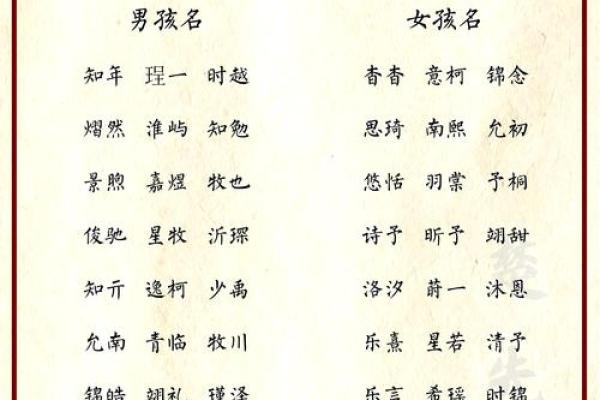 男孩名 女孩名
知年 珵一 时越 杳杳 意柯 锦念
熠然 淮屿 知勉 思琦 南熙 允初
景煦 嘉煜 牧也 悠恬 羽棠 予桐
俊驰 星牧 沂琛 诗予 昕予 翊甜
知亓 逸柯 少禹 洛汐 莳一 沐恩
允南 青临 牧川 乐熹 星若 清予
锦皓 翊礼 瑾泽 乐言 希瑶 时锦